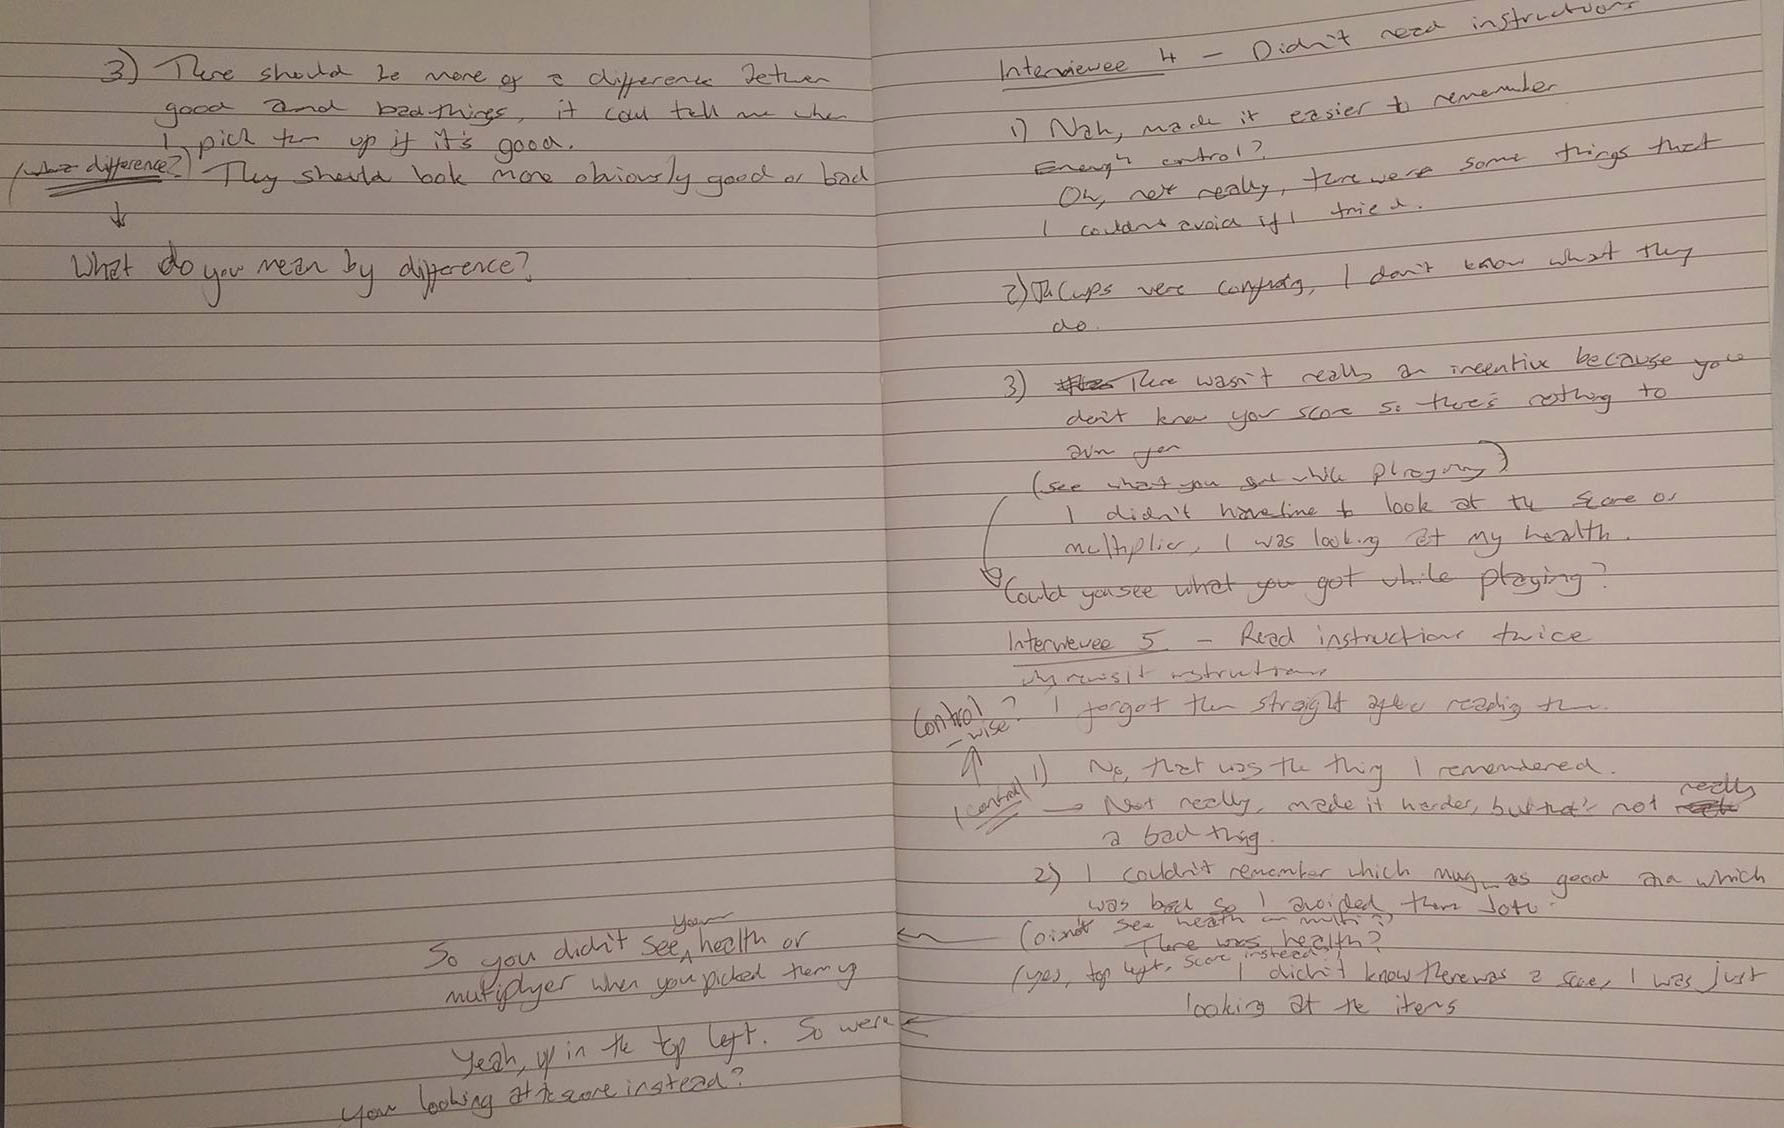 3) There should be more of a difference between
good and bad things, it could tell me when
I pick them up if it's good.
(what difference?) They should look more obviously good or bad
What do you mean by difference?
So you didn't see your health or
multiplyer when you picked them up
Yeah, up in the top left. So were
you looking at the score instead?
Interviewee 4 - Didn't read instructions
1) Nah, made it easier to remember
Enough control?
Oh, not really, there were some things that
I couldn't avoid if I tried.
2) The cups were confusing, I don't know what they
do.
3) There wasn't really an incentive because you
don't know your score so there's nothing to
(see what you got while playing)
I didn't have time to look at the score or
multiplier, I was looking at my health.
Could you see what you got while playing?
Interviewee 5 - Read instructions twice
why revisit instructions
I forgot them straight after reading them.
Control
-wise?
1) No, that was the thing I remembered.
(control) → Not really, made it harder, but that's not really
a bad thing.
2) I couldn't remember which mug was good and which
was bad so I avoided them both.
(Didn't see health or multi?)
There was health?
(yes, top left, score instead?)
I didn't know there was a score, I was just
looking at the items